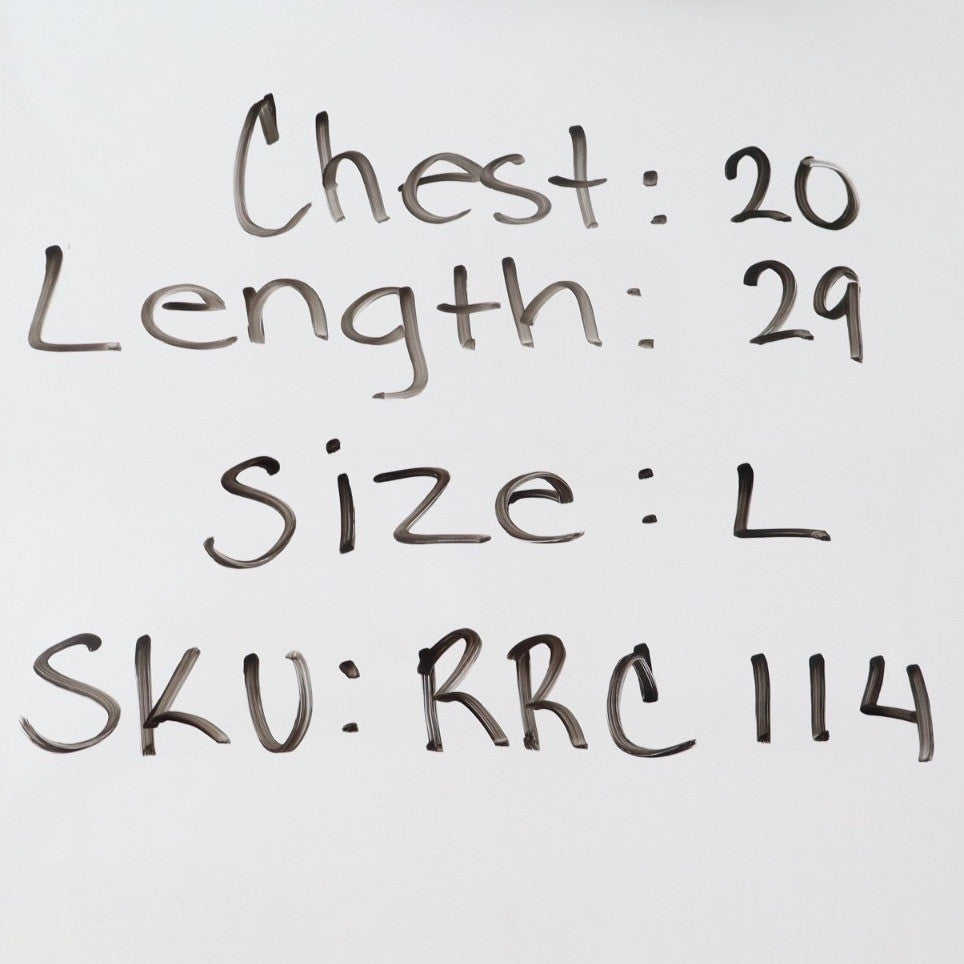 Chest: 20
Length: 29
Size: L
SKU: RRC 114